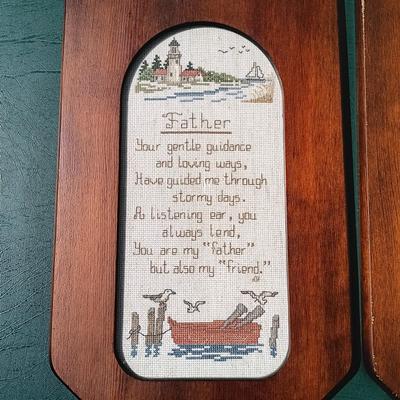 Father
Your gentle guidance
and loving ways,
Have guided me through
stormy days.
A listening ear, you
always lend,
You are my "father"
but also my "friend."